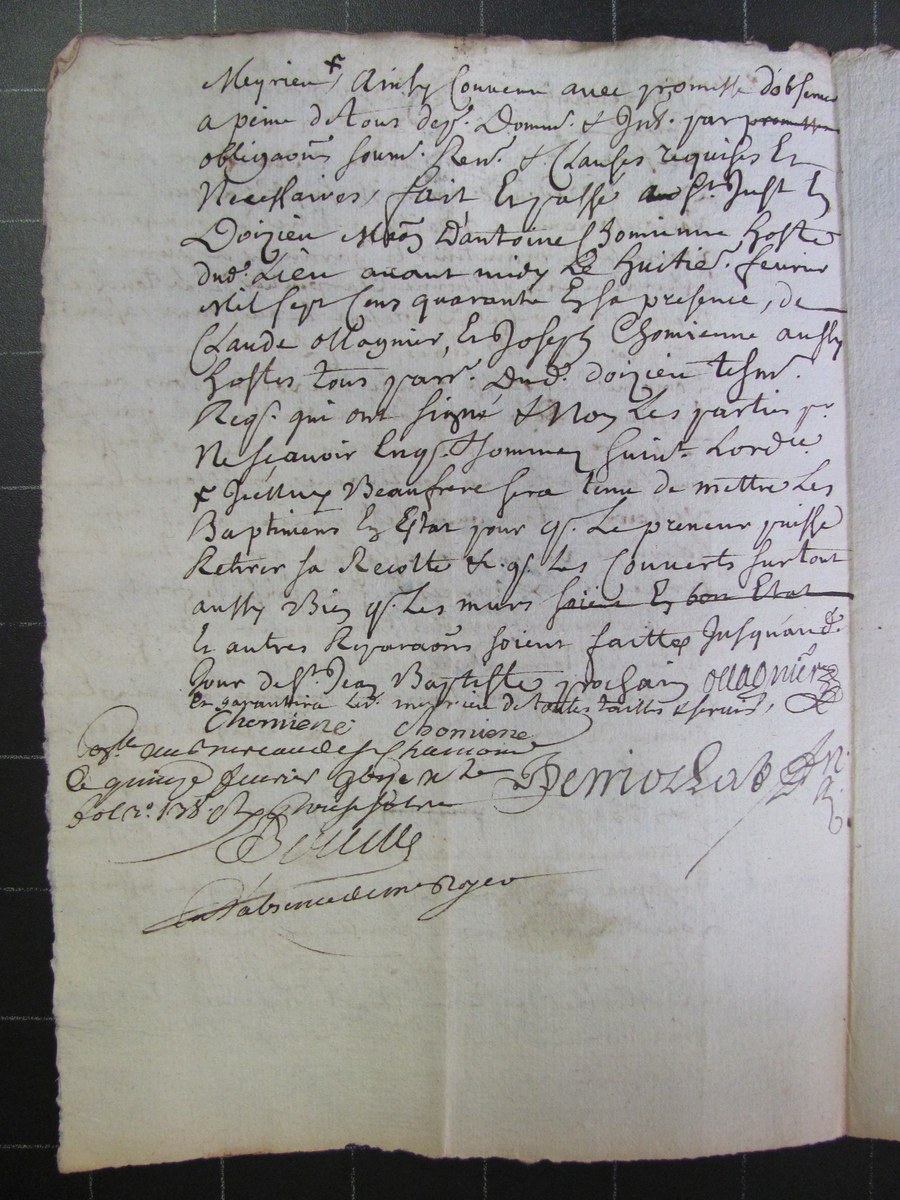 Meyrieu + Ainsy Convenu avec promesse d'observer
a peine de tous dep^s. Domm^s. & Int^s. par promettre
obligaōns soum^s. Ren^s. & Clauses requises Et
Necessaires, fait Et passé a St Just En
Doizieu Maōn D'antoine Chomienne hoste
dud^t. Lieu avant midy Le huitie^e. fevrier
Mil sept Cens quarante En la presence, de
Claude ollagnier, Et Joseph Chomienne aussy
hostes, tous parr^s. dud^t. doizieu tesm^s.
Req^s. qui ont signé & Non Les parties p^r.
Ne sçavoir Enq^s. & sommez suiv^t. Lord^ce.
+ Beaufrere sera tenu de mettre Les
Baptimens En Estat pour q^e. Le preneur puisse
Retirer sa Recolte & q^e. Les Couverts surtout
aussy Bien q^e. Les murs soient En bon Etat
Et autres Reparaōns soient faittes Jusqu'au d^t.
Jour de St Jean Baptiste prochain ollagnier
Et garantira led^t. meyrieu de toutes tailles & servis,
Chomiene Chomiene
au Bureau de St Chamond
Le quinze fevrier
fol r^o. 138
en L'absence de m^r Royer